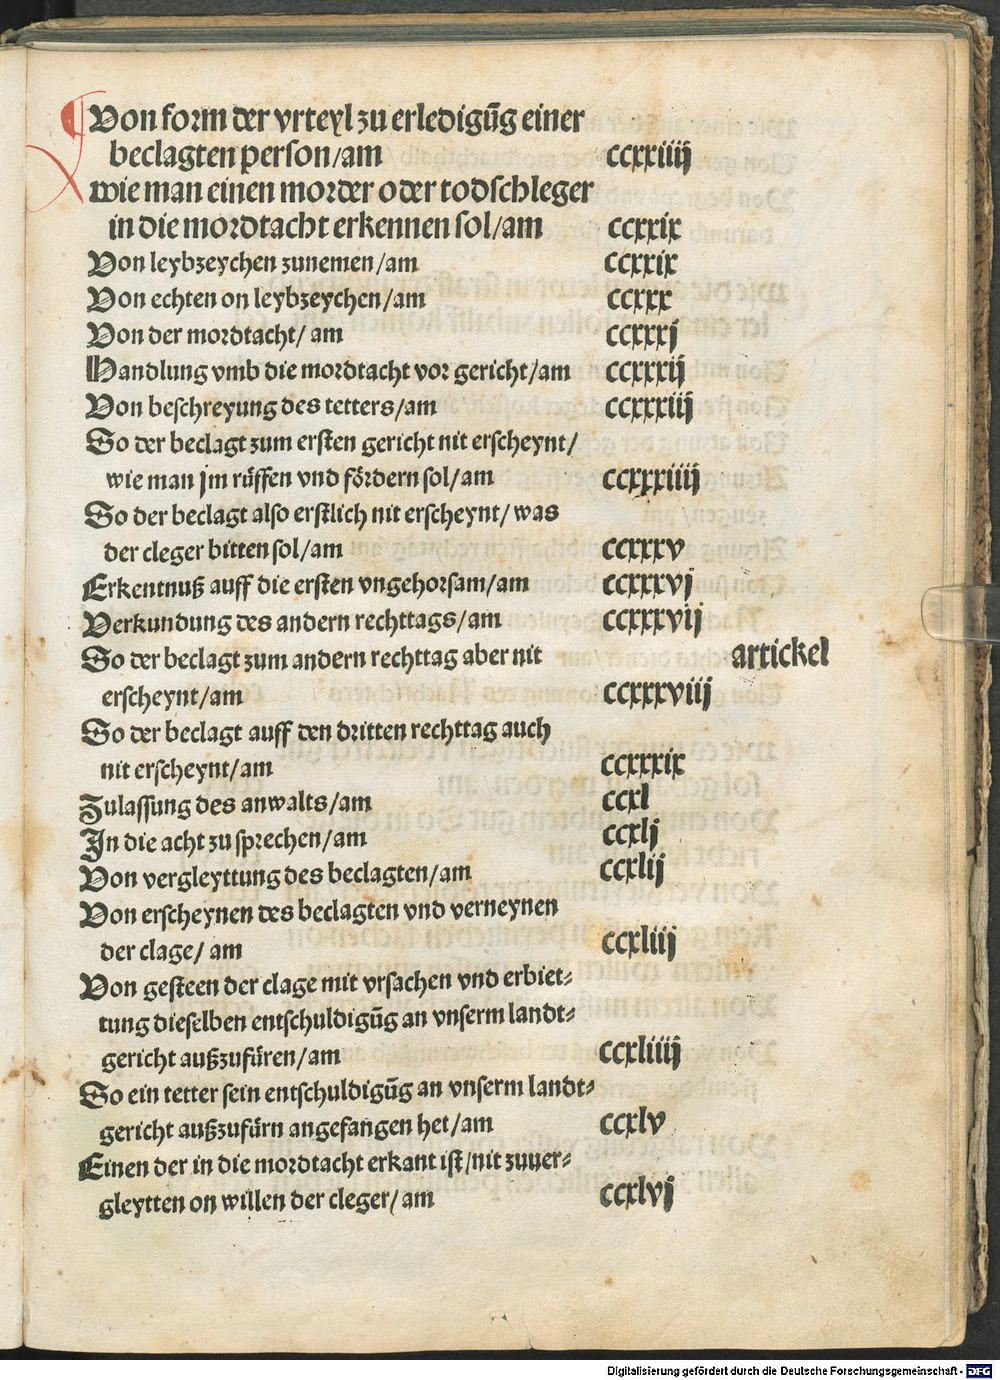 Von form der vrteyl zu erledigũg einer
beclagten person/am ccxxiiij
wie man einen morder oder todschleger
in die mordtacht erkennen sol/am ccxxix
Von leybzeychen zunemen/am ccxxix
Von echten on leybzeychen/am ccxxx
Von der mordtacht/ am ccxxxj
Handlung vmb die mordtacht vor gericht/am ccxxxij
Von beschreyung des tetters/am ccxxxiij
So der beclagt zum ersten gericht nit erscheynt/
wie man jm rüffen vnd fördern sol/am ccxxxiiij
So der beclagt also erstlich nit erscheynt/was
der cleger bitten sol/am ccxxxv
Erkentnuß auff die ersten vngehorsam/am ccxxxvj
Verkundung des andern rechttags/am ccxxxvij
So der beclagt zum andern rechttag aber nit artickel
erscheynt/am ccxxxviij
So der beclagt auff den dritten rechttag auch
nit erscheynt/am ccxxxix
Zulassung des anwalts/am ccxl
In die acht zu sprechen/am ccxlj
Von vergleyttung des beclagten/am ccxlij
Von erscheynen des beclagten vnd verneynen
der clage/ am ccxliij
Von gesteen der clage mit vrsachen vnd erbiet⸗
tung dieselben entschuldigũg an vnserm landt⸗
gericht außzufüren/am ccxliiij
So ein tetter sein entschuldigũg an vnserm landt⸗
gericht außzufürn angefangen het/am ccxlv
Einen der in die mordtacht erkant ist/nit zuuer⸗
gleytten on willen der cleger/am ccxlvj
Digitalisierung gefördert durch die Deutsche Forschungsgemeinschaft - DFG